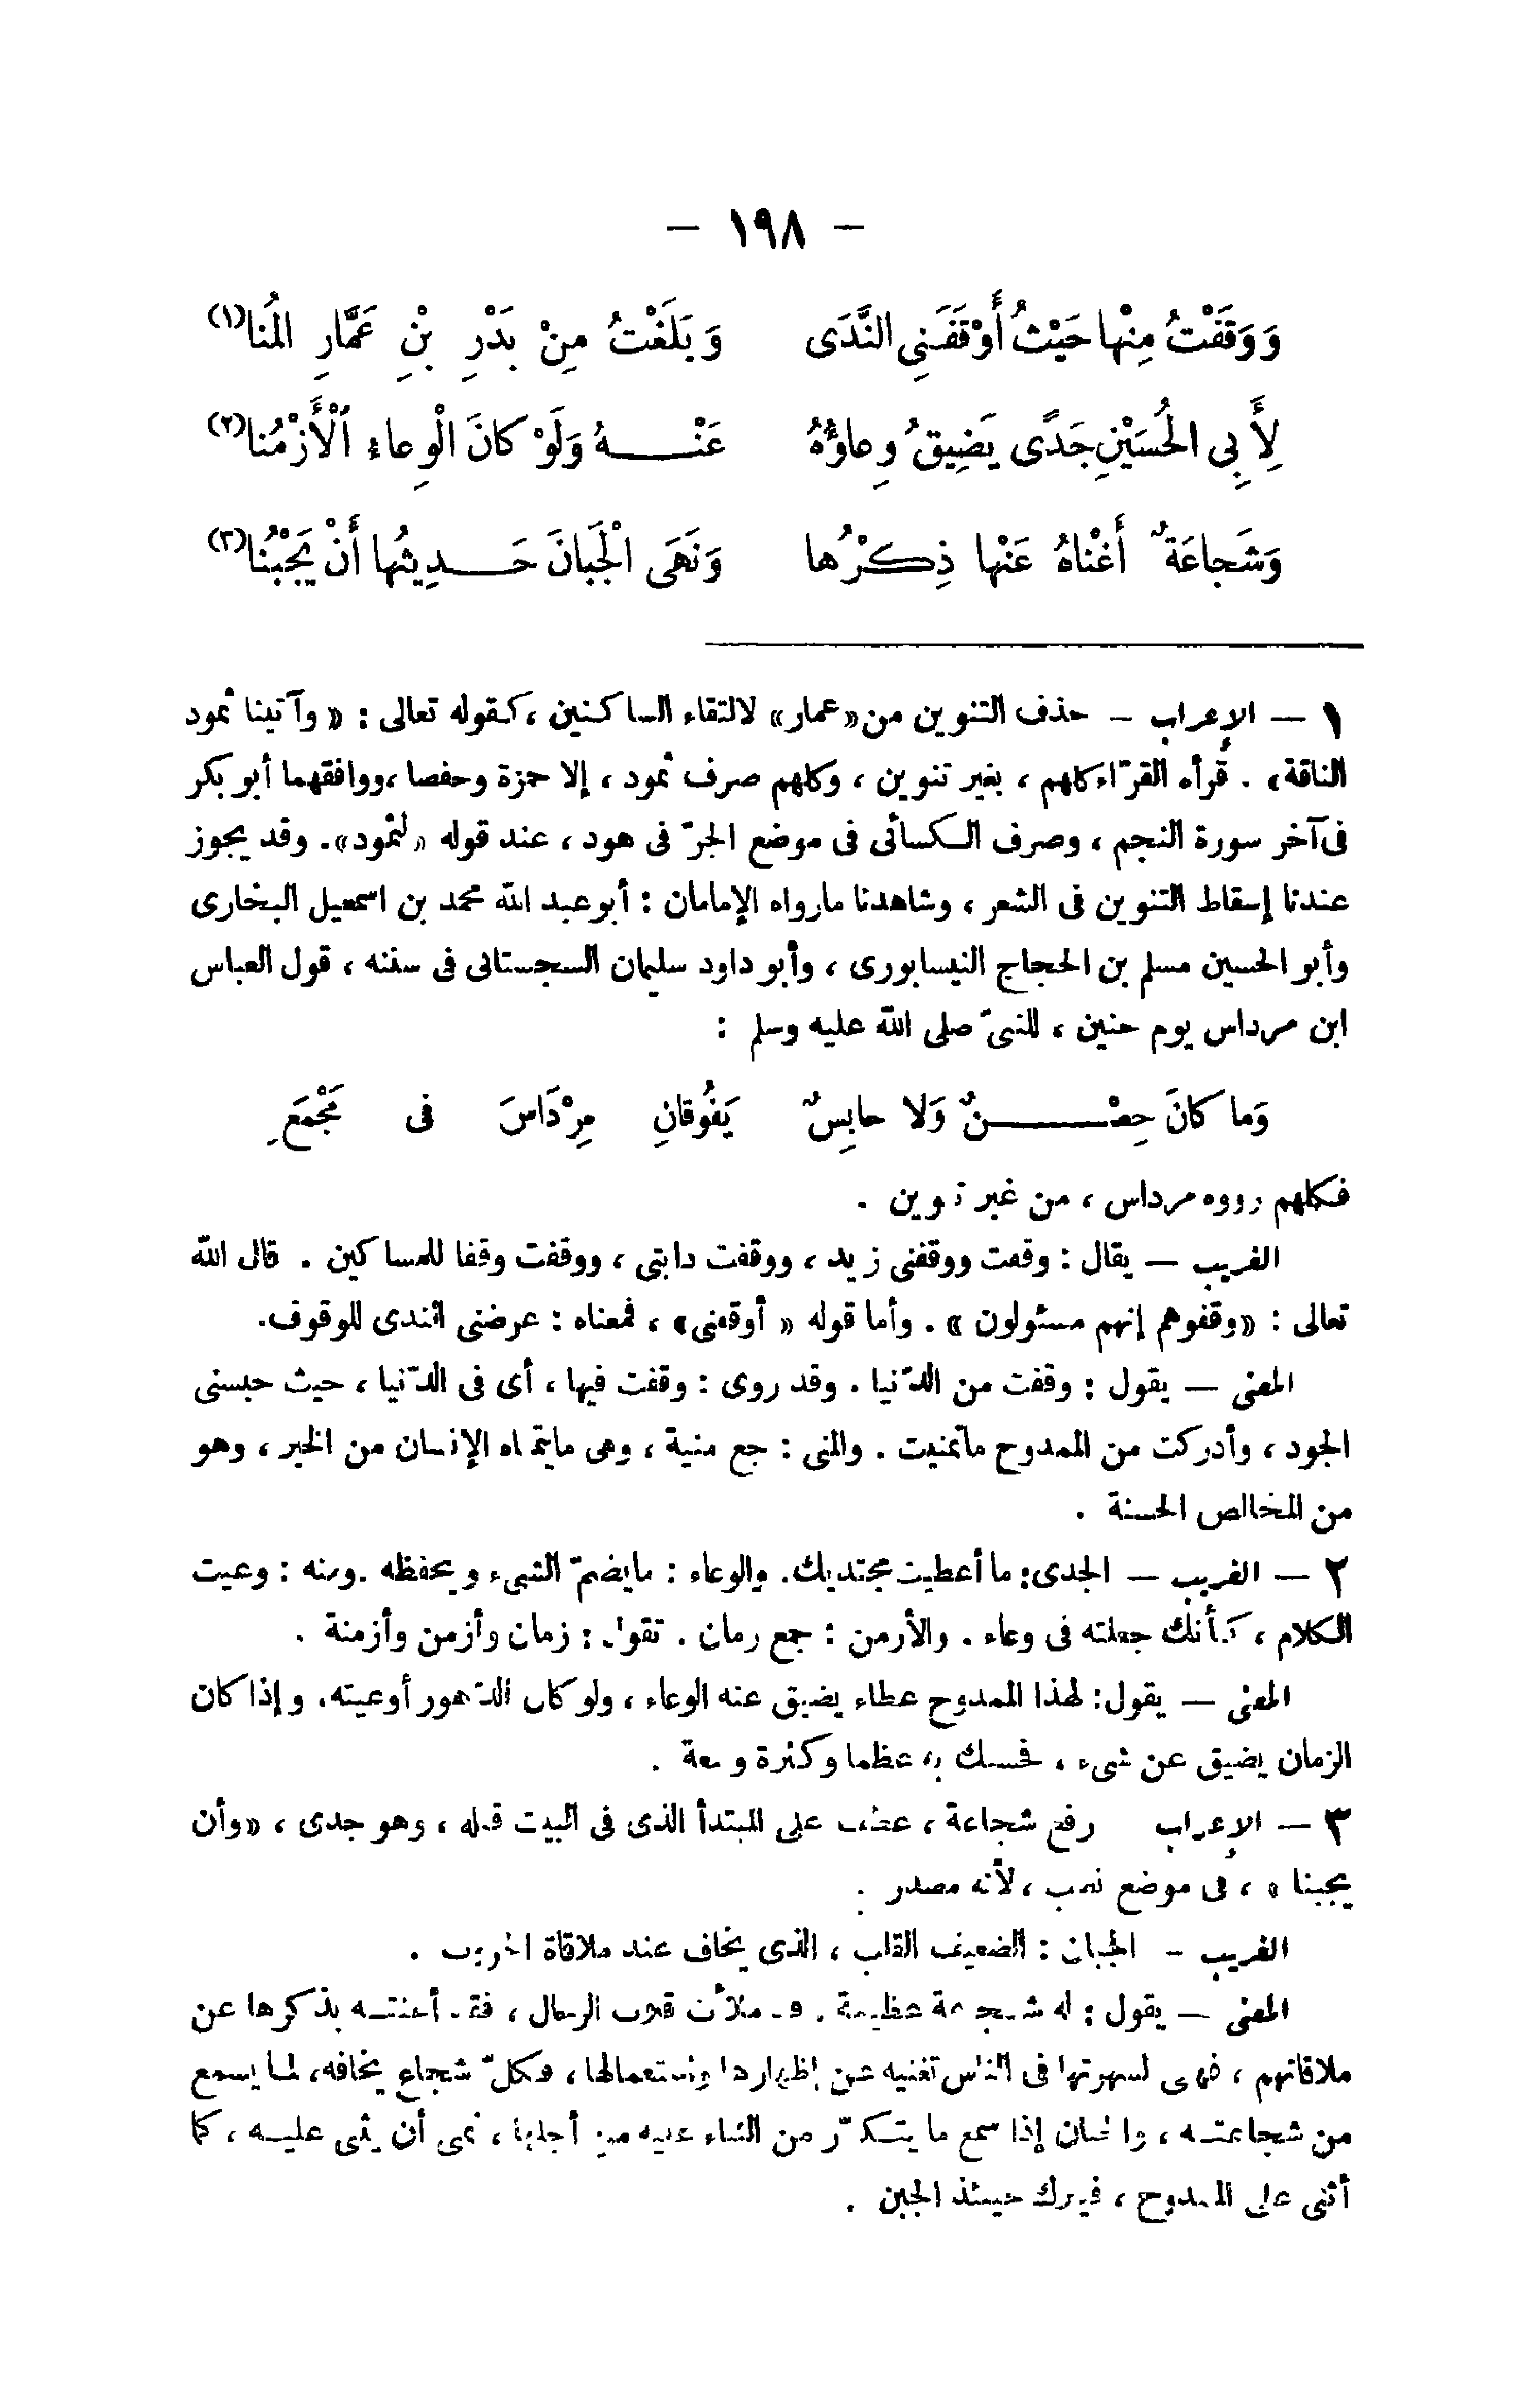 – ١٩٨ –
وَوَقَفْتُ مِنْها حَيْثُ أَوْقَفَنِي النَّدَى وَبَلَغْتُ مِنْ بَدْرِ بْنِ عَمَّارِ المُنا(١)
لِأَبِى الحُسَيْنِ جَدًى يَضِيقُ وِعاؤُهُ عَنْهُ وَلَوْ كانَ الْوِعاءِ اَلْأَزْمُنا(٢)
وَشَجاعَةٌ أَغْناهُ عَنْها ذِكْرُها وَنَهَى الْجَبانَ حَدِيثُها أَنْ يَجْبُنا(٣)
١ – الإعراب – حذف التنوين من «عمار» لالتقاء الساكنين ، كقوله تعالى : « وآتينا ثمود
الناقة» . قرأه القرّاء كلهم ، بغير تنوين ، وكلهم صرف ثمود ، إلا حمزة وحفصا ، ووافقهما أبو بكر
فى آخر سورة النجم ، وصرف الكسائى فى موضع الجرّ فى هود ، عند قوله «لثمود». وقد يجوز
عندنا إسقاط التنوين فى الشعر ، وشاهدنا مارواه الإمامان : أبو عبد الله محمد بن اسمعيل البخارى
وأبو الحسين مسلم بن الحجاج النيسابورى ، وأبو داود سليمان السجستانى فى سننه ، قول العباس
ابن مرداس يوم حنين ، للنبىّ صلى الله عليه وسلم :
وَما كانَ حِصْنٌ وَلا حابِسٌ يَفُوقانِ مِرْدَاسَ فى مَجْمَعِ
فكلهم رووه مرداس ، من غير تنوين .
الغريب – يقال : وقفت ووقفنى زيد ، ووقفت دابتى ، ووقفت وقفا للمساكين . قال الله
تعالى : «وقفوهم إنهم مسئولون» . وأما قوله « أوقفنى» ، فمعناه : عرضنى الندى للوقوف.
المعنى – يقول : وقفت من الدّنيا . وقد روى : وقفت فيها ، أى فى الدّنيا ، حيث حبسنى
الجود ، وأدركت من الممدوح ماتمنيت . والمنى : جمع منية ، وهى مايتمناه الإنسان من الخير ، وهو
من المخالص الحسنة .
٢ – الغريب – الجدى: ما أعطيت مجتديك. والوعاء : مايضمّ الشىء ويحفظه . ومنه : وعيت
الكلام ، كأنك جعلته فى وعاء . والأزمن : جمع زمان . تقول : زمان وأزمن وأزمنة .
المعنى – يقول: لهذا الممدوح عطاء يضيق عنه الوعاء ، ولو كان الدّهور أوعيته. وإذا كان
الزمان يضيق عن شىء ، فحسبك به عظما وكثرة وسعة .
٣ – الإعراب رفع شجاعة ، عطف على المبتدأ الذى فى البيت قبله ، وهو جدى ، «وأن
يجبنا » ، فى موضع نصب ، لأنه مصدر .
الغريب – الجبان : الضعيف القلب ، الذى يخاف عند ملاقاة الحروب .
المعنى – يقول : له شجاعة عظيمة . قد ملأت قلوب الرجال ، فقد أغنته بذكرها عن
ملاقاتهم ، فهى لشهرتها فى الناس تغنيه عن إظهارها واستعمالها ، فكلّ شجاع يخافه ، لما يسمع
من شجاعته ، والجبان إذا سمع ما يتكرّر من الثناء عليه من أجلها ، تمنى أن يثنى عليه ، كما
أثنى على الممدوح ، فيترك حينئذ الجبن .